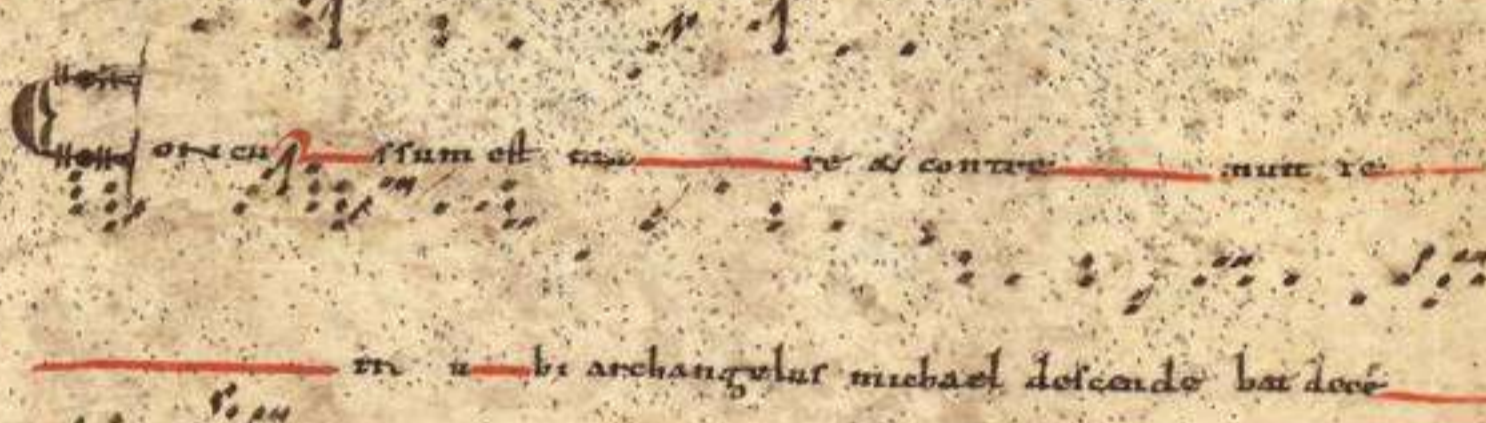 Concu ssum est ma re & contre muit te
rra u bi archangelus michael descende bat de ce